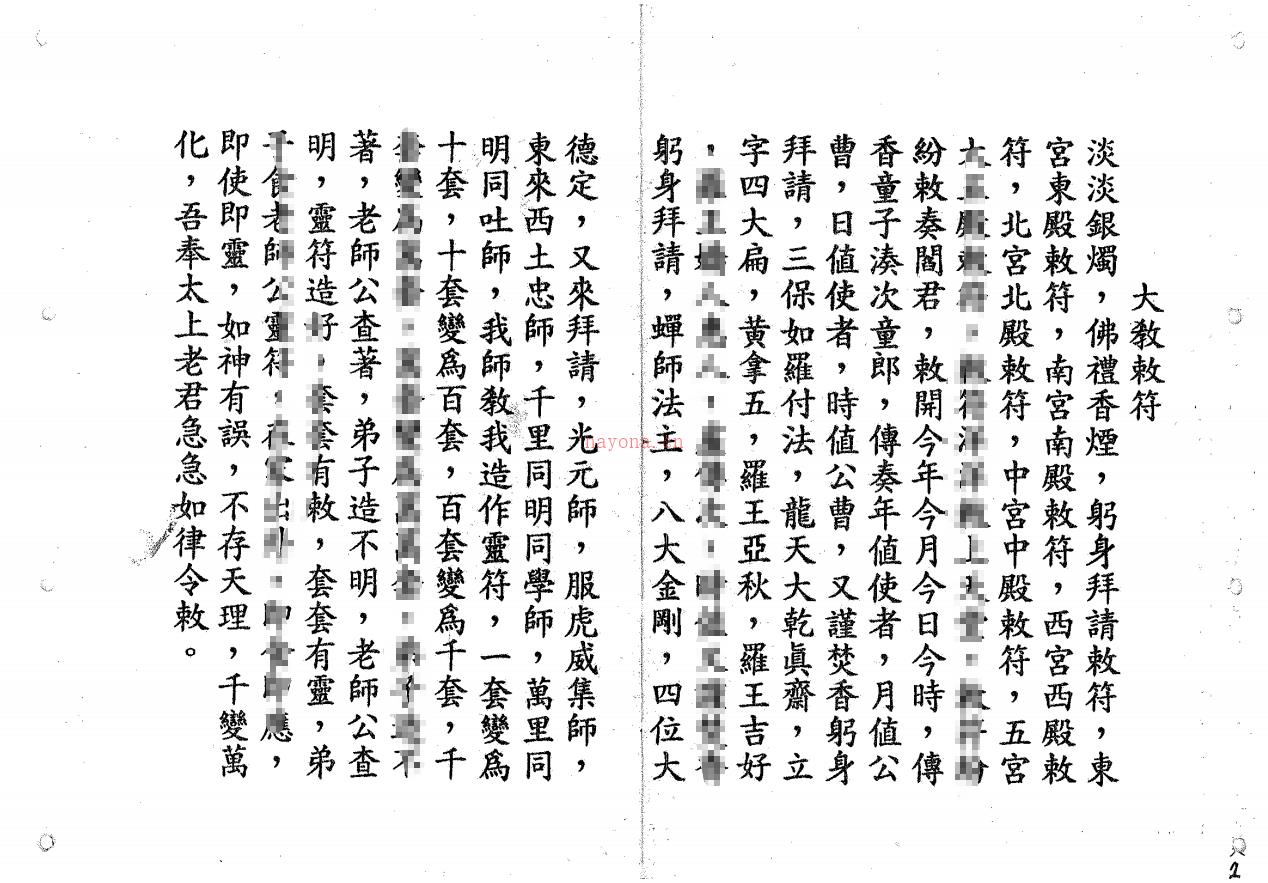 大教敕符
淡淡銀燭，佛禮香煙，躬身拜請敕符，東
宮東殿敕符，南宮南殿敕符，西宮西殿敕
符，北宮北殿敕符，中宮中殿敕符，五宮
紛敕奏閻君，敕開今年今月今日今時，傳
香童子湊次童郎，傳奏年值使者，月值公
曹，日值使者，時值公曹，又謹焚香躬身
拜請，三保如羅付法，龍天大乾眞齋，立
字四大扁，黃拿五，羅王亞秋，羅王吉好
躬身拜請，蟬師法主，八大金剛，四位大
德定，又來拜請，光元師，服虎威集師，
東來西土忠師，千里同明同學師，萬里同
明同吐師，我師教我造作靈符，一套變爲
十套，十套變爲百套，百套變爲千套，千
著，老師公查著，弟子造不明，老師公查
明，靈符造好，套套有敕，套套有靈，弟
子食老師公靈符，應，
即使即靈，如神有誤，不存天理，千變萬
化，吾奉太上老君急急如律令敕。
nayona.cn
2